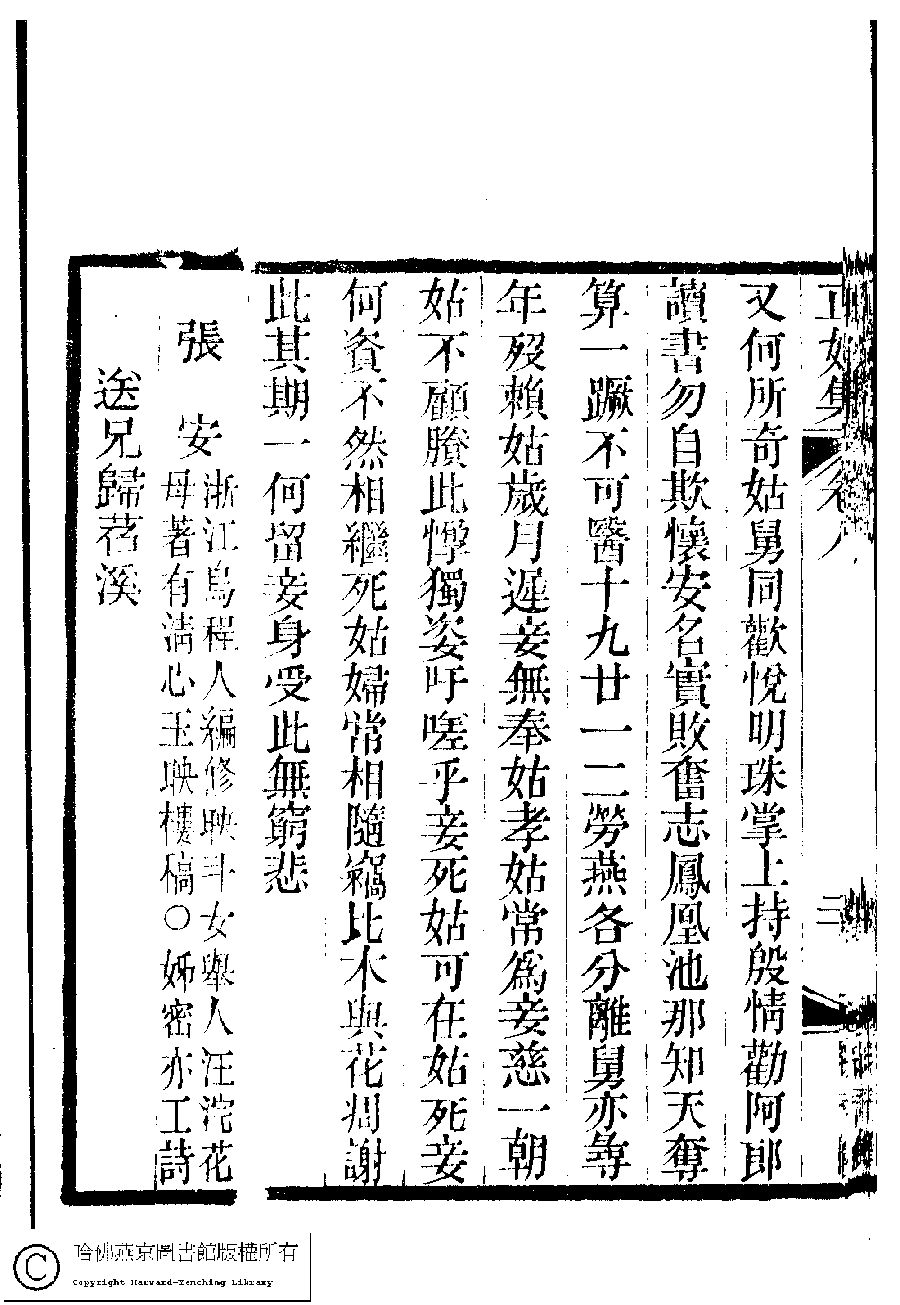 正始集 卷八 三
又何所奇姑舅同歡悅明珠掌上持殷情勸阿郎
讀書勿自欺懷安名實敗奮志鳳凰池那知天奪
算一蹶不可醫十九廿一二勞燕各分離舅亦每
年歿賴姑歲月遲妾無奉姑孝姑常爲妾慈一朝
姑不顧賸此惸獨姿吁嗟乎妾死姑可在姑死妾
何資不然相繼死姑婦常相隨竊比木與花凋謝
此其期一何留妾身受此無窮悲
張 安
浙江烏程人編修映斗女舉人汪沱花
母著有清心玉映樓稿○姊密亦工詩
送兄歸苕溪
哈佛燕京圖書館版權所有
Copyright Harvard-Yenching Library